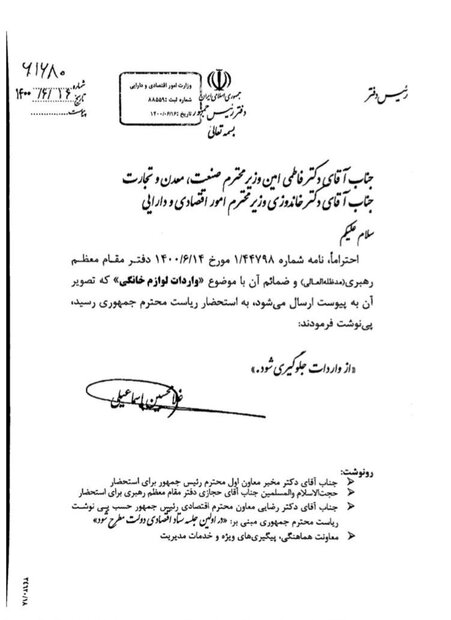 رئیس دفتر
جمهوری اسلامی ایران
دفتر رئیس جمهور
بسمه تعالی
وزارت امور اقتصادی و دارایی
شماره ثبت :۸۸۵۵۹
تاریخ :۱۴۰۰/۰۶/۱۶
شماره ۶۱۶۸۰
تاریخ ۱۴۰۰/۶/۱۶
پیوست
جناب آقای دکتر فاطمی امین وزیر محترم صنعت، معدن و تجارت
جناب آقای دکتر خاندوزی وزیر محترم امور اقتصادی و دارایی
سلام علیکم
احتراماً، نامه شماره ۱/۴۴۷۹۸ مورخ ۱۴۰۰/۶/۱۴ دفتر مقام معظم
رهبری(مدظله‌العالی) و ضمائم آن با موضوع «واردات لوازم خانگی» که تصویر
آن به پیوست ارسال می‌شود، به استحضار ریاست محترم جمهوری رسید،
پی‌نوشت فرمودند:
«از واردات جلوگیری شود.»
غلامحسین اسماعیلی
رونوشت:
جناب آقای دکتر مخبر معاون اول محترم رئیس جمهور برای استحضار
حجت‌الاسلام والمسلمین جناب آقای حجازی دفتر مقام معظم رهبری برای استحضار
جناب آقای دکتر رضایی معاون محترم اقتصادی رئیس جمهور حسب پی نوشت
ریاست محترم جمهوری مبنی بر: «در اولین جلسه ستاد اقتصادی دولت مطرح شود»
معاونت هماهنگی، پیگیری‌های ویژه و خدمات مدیریت